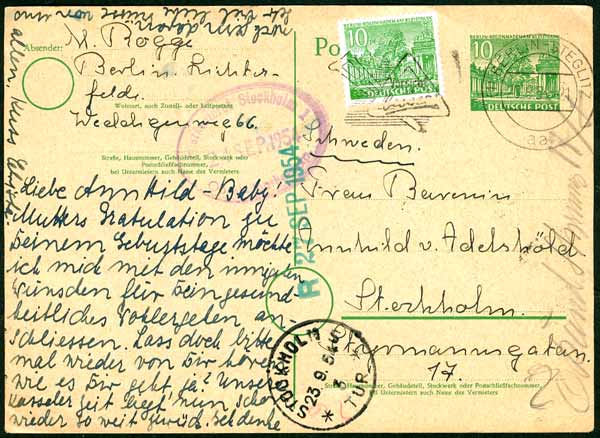 Absender:
M. Rogge
Berlin Lichter-
felde
Wohnort, auch Zustell- oder Leitpostamt
Weddigenweg 66.
Straße, Hausnummer, Gebäudeteil, Stockwerk oder
Postschließfachnummer,
bei Untermietern auch Name des Vermieters
Liebe Annhild-Baby!
Mutters Gratulation zu
Deinem Geburtstage möchte
ich mich mit den innigen
Wünschen für Dein gesund-
heitliches Wohlergehen an-
schliessen. Lass doch bitte
mal wieder von Dir hören
wie es Dir geht ja? Unsere
Kasseler Zeit liegt nun schon
wieder so weit zurück. Ich denke
noch
viel
allem. Kuss
Po
10
DEUTSCHE POST
10
DEUTSCHE POST
BERLIN-STEGLITZ
Stockholm 1
SEP. 1954
R 23 SEP. 1954
STOCKHOLM
23.9.54
TUR
Schweden.
Frau Baronin
Annhild v. Adelsköld
Stockholm.
Styrmannsgatan
17.
Straße, Hausnummer, Gebäudeteil, Stockwerk oder Postschließfachnummer,
bei Untermietern auch Name des Vermieters